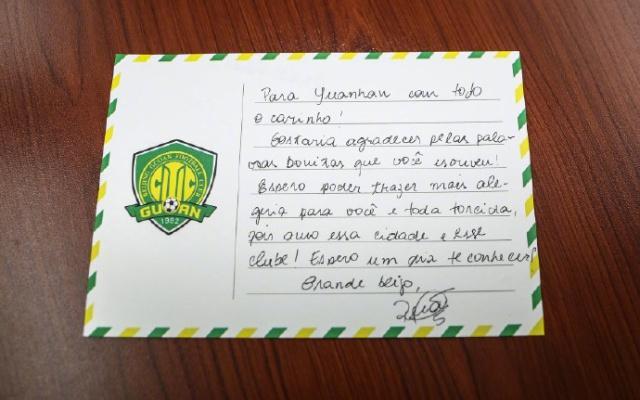 BEIJING GUOAN FOOTBALL CLUB
CITIC
GUOAN
1992
Para Yuanhan com todo
o carinho!
Gostaria agradecer pelas pala-
vras bonitas que você escreveu!
Espero poder trazer mais ale-
gria para você e toda torcida,
pois amo essa cidade e esse
clube! Espero um dia te conhecer!
Grande beijo,